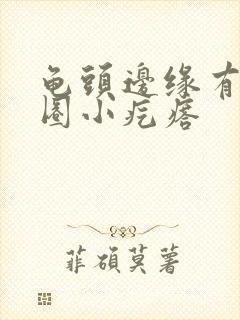 龟頭邊缘有
圈小疙瘩
菲碩莫著